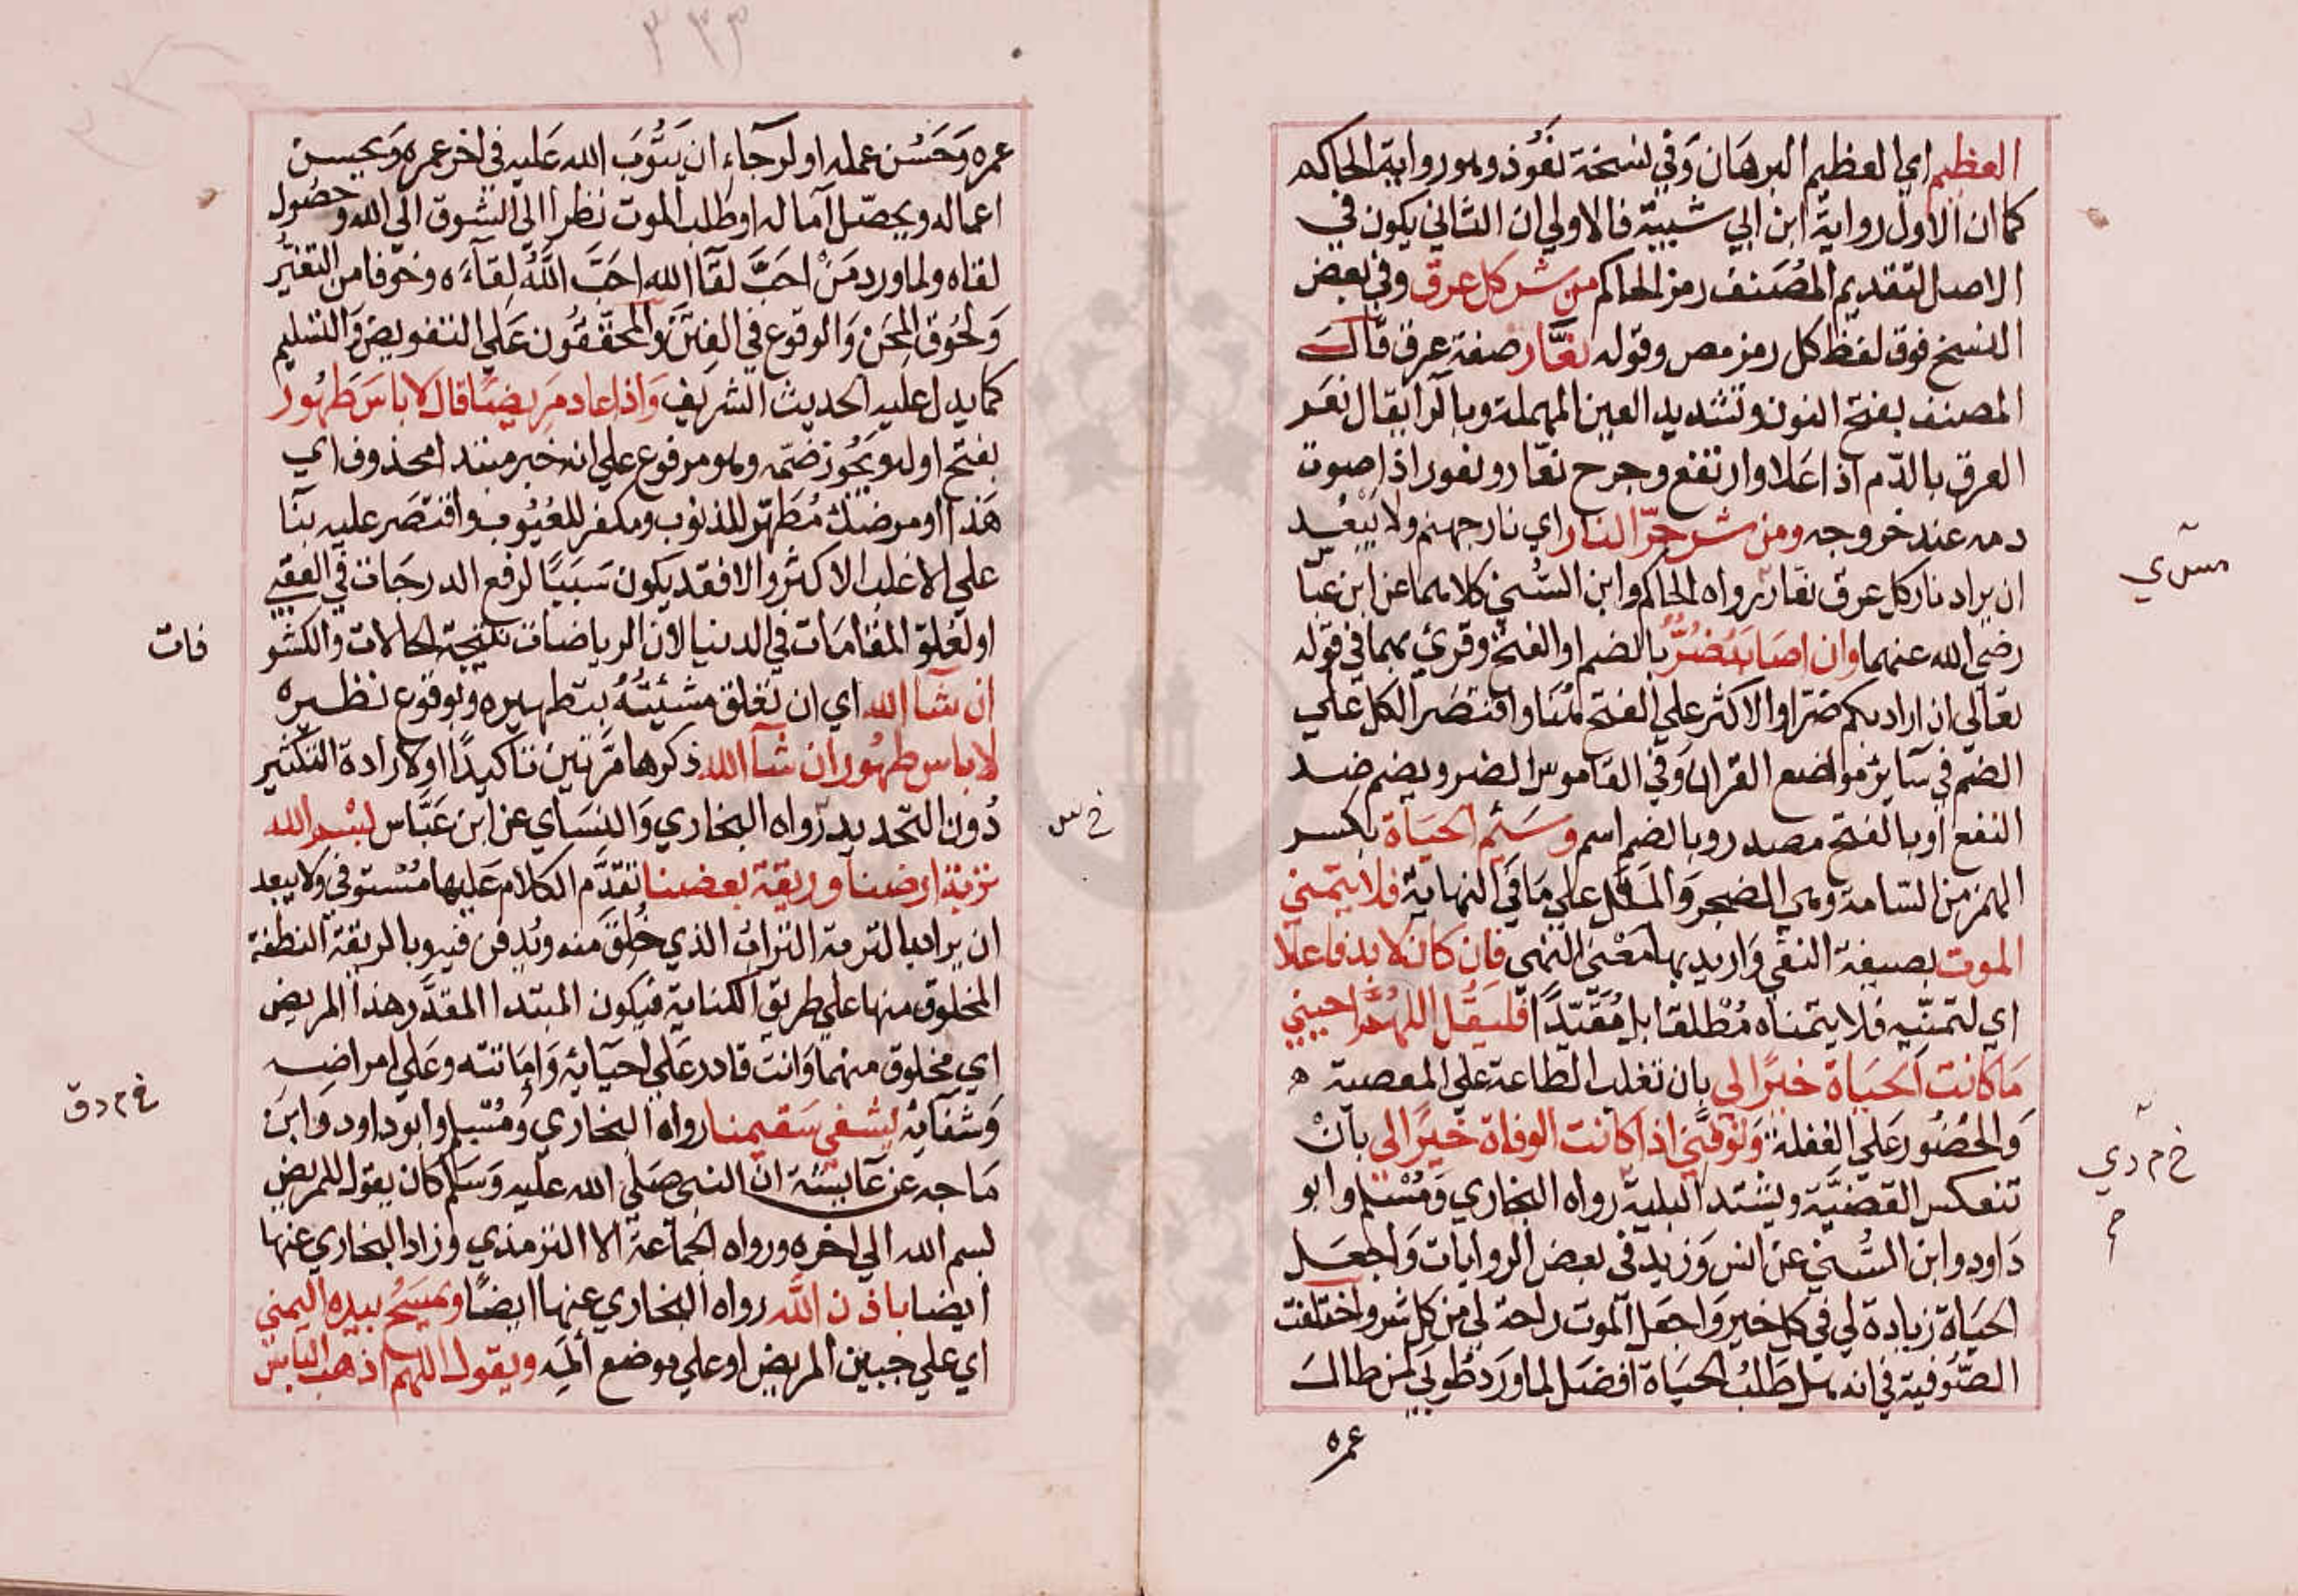 العظيم اي العظيم البرهان وفي نسخة نعوذ وهو رواية الحاكم
كما ان الاول رواية ابن ابي شيبة فالاولي ان الثاني يكون في
الاصل لتقديم المُصَنف رمز الحاكم من شر كل عرق وفي بعض
النسخ فوق لفظ كل رمز مص وقوله نعَّار صفة عرق قال
المصنف بفتح النون وتشديد العين المهملة وبالرا يقال نعَر
العرق بالدّم اذا علا وارتفع وجرح نعّار ونعور اذا صوت
دمه عند خروجه ومن شر حرّ النار اي نار جهنم ولا يبعُد
ان يراد نار كل عرق نعّار رواه الحاكم وابن السُّني كلاهما عن ابن عبّا
رضي الله عنهما وان اصابه ضُرٌّ بالضم او الفتح وقرئ بهما في قوله
تعالي ان اراد بكم ضرّا والاكثر علي الفتح هُنا واقتصَر الكل علي
الضم في سآئر مواضع القران وفي القاموس الضر ويضم ضد
النفع او بالفتح مصدر وبالضم اسم وسَئم الحياة بكسر
الهمز من السّامة وهي الضجر والملل علي مَا في النهاية فلا يتمني
الموت بصيغة النفي واريد بها معْني النهي فان كان لا بد فاعلا
اي لتمنّيه فلا يتمناه مُطلقا بل مُقَيّدًا فليقل اللهُمَّ احييني
مَا كانت الحيَاة خيرًا لي بان تغلب الطاعة علي المعصية ه
وَالحُضُور عَلي الغفلة وتوفّني اذا كانت الوفاة خيرًا لي بانْ
تنعكس القضيَّة ويشتد البلية رواه البخاري وَمُسْلم وابو
دَاود وابن السُّني عن انس وَزيد في بعض الروايات وَاجعَل
الحيَاة زيادة لي في كل خير وَاجعَل الموت راحة لي من كل شر واختلفت
الصُّوفية في انه هل طَلبُ الحيَاة افضَل لما ورَد طُوبي لمن طال
عمره
مس ي
خ م د ي
عمره وَحَسُن عمله او لرجآءِ ان يَتُوبَ الله عَليه في اخر عمره ويحسن
اعماله ويحصّل آماله او طلب الموت نظرا الي الشوق الي الله وحصُول
لقاه ولما ورد مَنْ احَبَّ لقآ الله احَبَّ اللهُ لِقآءَه وخوفا من التغيُّر
وَلحُوق المِحَن وَالوقوع في الفِتَن وَالمحقّقُون عَلي التفويض وَالتسليم
كما يدل عليه الحديث الشريف وَاذا عاد مَريضًا قال لا باسَ طَهُور
بفتح اوله ويجُوز ضمّه وهو مرفوع علي انه خبر مبتدا محذوف اي
هَذا او مرضك مُطَهّر للذنوب ومكفر للعُيُوب واقتصَر عليه بنآ
علي الاغلب الاكثر والا فقد يكون سَبَبًا لرفع الدرجَات في العقبي
او لعُلوّ المقامَات في الدنيا لان الرياضات نتيجة الحالات والكشو
فات
ان شآ الله اي ان تعَلق مشيئتُهُ بتطهيره وبوقوع نظيره
لا باس طهُور ان شآ الله ذكرها مرّتين تاكيدًا او لارادة التكثير
دُون التّحديد رواه البخاري وَالنِسَاي عن ابن عَبَّاس بسْم الله
تربة ارضنا وريقة بعضنا تقدَّم الكلام عَليها مُسْتوفي ولا يبعد
ان يراد بالتربة الترابُ الذي خُلِقَ منه ويُدفن فيه وبالريقة النطفة
المخلوق منها علي طريق الكناية فيكون المبتدا المقدَّر هذا المريض
اي مخلوق منهما وَانت قادر عَلي احيَآئه وَامَاتته وعَلي امراضِه
وَشفَآئه ليشفي سَقيمنا رواه البخاري وَمُسْلم وابو داود وَابن
مَاجه عن عَآيشة ان النبي صَلي الله عليه وَسَلم كان يقول للمريض
بسم الله الي اخره ورواه الجماعَة الا الترمذي وزاد البخاري عنها
ايضا باذن اللَّه رواه البخاري عنها ايضًا ويمسَحُ بيده اليمني
اي علي جبين المريض او علي موضع ألمِه ويقول اللهم اذهب الباس
خ س
خ م د ق
٣٣٣